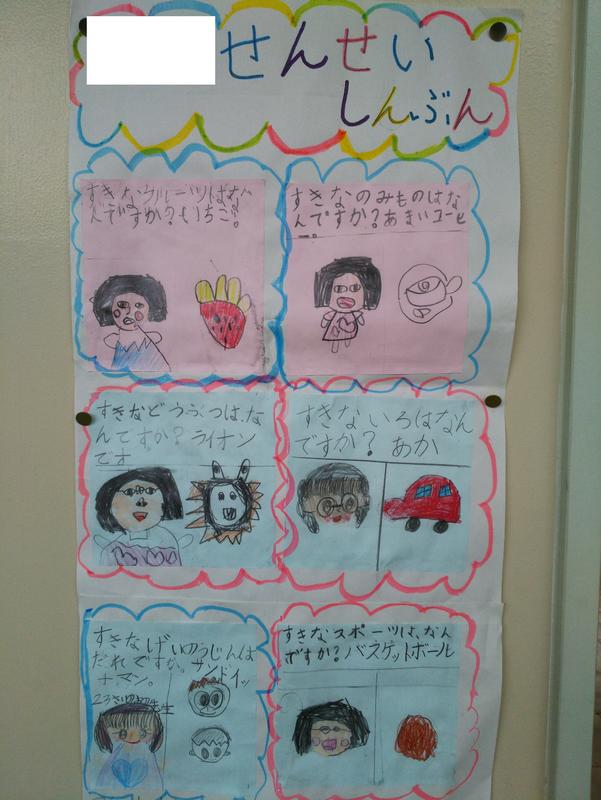 せんせい
しんぶん
すきなフルーツはな
んですか?もいちご。
すきなのみものはな
んですか?あまいコーヒ
ー。
すきなどうぶつは、な
んてすか?ライオン
です
すきないろはなん
ですか? あか
すきなげいのうじんは
だれですか。サンドイッ
チマン。
先生
すきなスポーツは、なん
ですか?バスケットボール